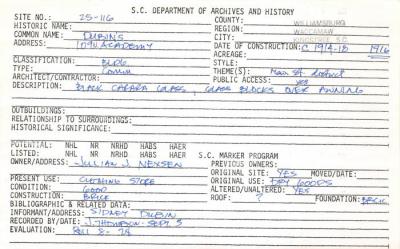 S.C. DEPARTMENT OF ARCHIVES AND HISTORY
SITE NO.: 25-116 COUNTY: WILLIAMSBURG
HISTORIC NAME: REGION: WACCAMAW
COMMON NAME: DUBIN'S CITY: KINGSTREE S.C.
ADDRESS: 109 ACADEMY DATE OF CONSTRUCTION: C. 1914-18 1916
ACREAGE:
CLASSIFICATION: BLDG STYLE:
TYPE: Comm THEME(S): Main St. district
ARCHITECT/CONTRACTOR: PUBLIC ACCESS: yes
DESCRIPTION: BLACK CARARA GLASS, GLASS BLOCKS OVER AWNING
OUTBUILDINGS:
RELATIONSHIP TO SURROUNDINGS:
HISTORICAL SIGNIFICANCE:
POTENTIAL: NHL NR NRHD HABS HAER
LISTED: NHL NR NRHD HABS HAER S.C. MARKER PROGRAM
OWNER/ADDRESS: JULIAN J. NEXSEN PREVIOUS OWNERS:
ORIGINAL SITE: YES MOVED/DATE:
PRESENT USE: CLOTHING STORE ORIGINAL USE: DRY GOODS
CONDITION: GOOD ALTERED/UNALTERED: YES
CONSTRUCTION: BRICK ROOF: ? FOUNDATION: BRICK
BIBLIOGRAPHIC & RELATED DATA:
INFORMANT/ADDRESS: SIDNEY DUBIN
RECORDED BY/DATE: J. THOMPSON - SEPT. 5
EVALUATION: ROLL 8-28